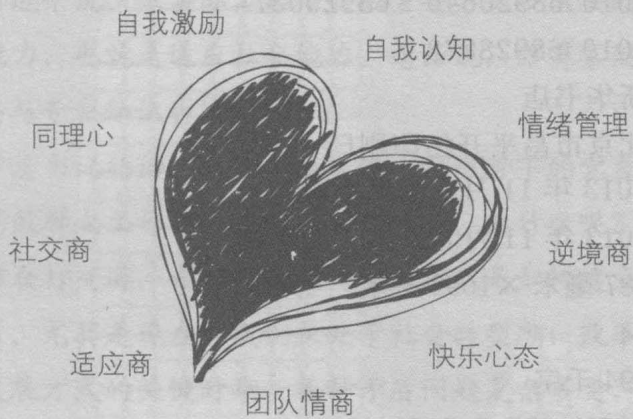 自我激励
自我认知
同理心
情绪管理
社交商
逆境商
适应商
快乐心态
团队情商